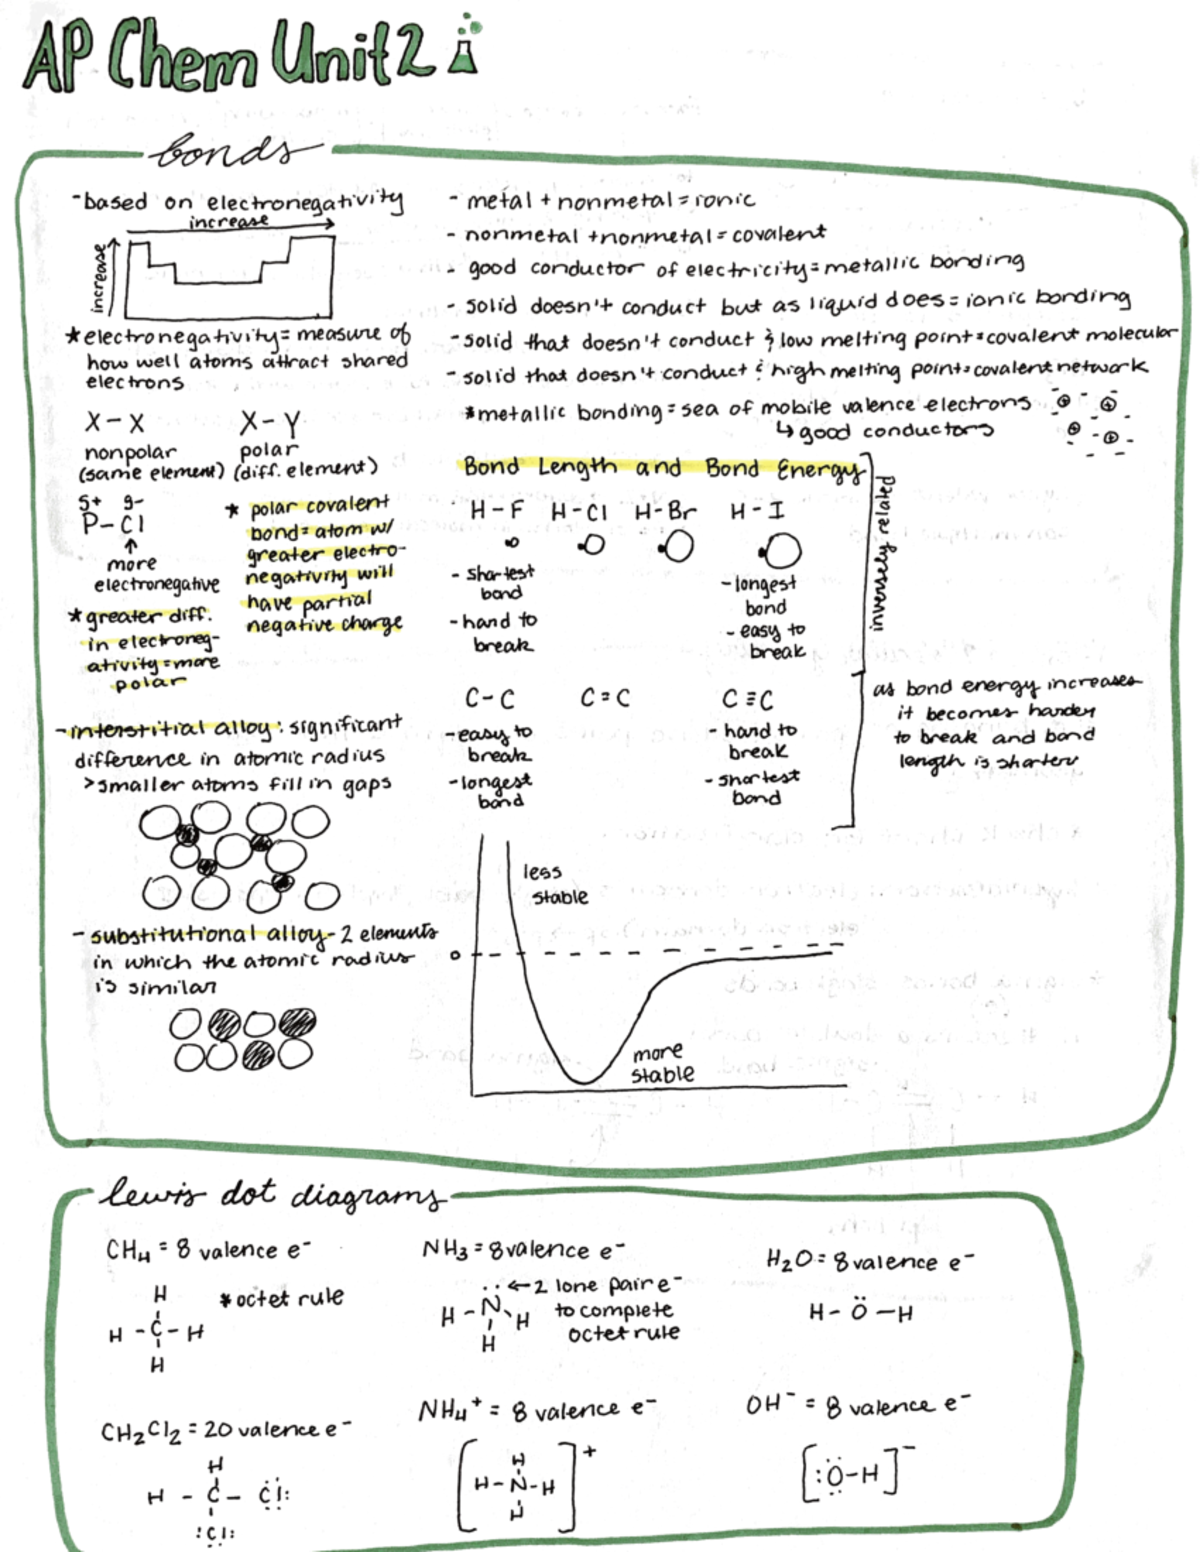 AP Chem Unit 2
bonds
-based on electronegativity
increase
increase
*electronegativity = measure of
how well atoms attract shared
electrons
X-X X-Y
nonpolar polar
(same element) (diff. element)
δ+ δ-
P-Cl
↑
more
electronegative
* polar covalent
bond = atom w/
greater electro-
negativity will
have partial
negative charge
*greater diff.
in electroneg-
ativity = more
polar
-interstitial alloy: significant
difference in atomic radius
>smaller atoms fill in gaps
- substitutional alloy - 2 elements
in which the atomic radius
is similar
- metal + nonmetal = ionic
- nonmetal + nonmetal = covalent
- good conductor of electricity = metallic bonding
- solid doesn't conduct but as liquid does = ionic bonding
-solid that doesn't conduct & low melting point = covalent molecular
-solid that doesn't conduct & high melting point = covalent network
*metallic bonding = sea of mobile valence electrons
↳ good conductors
Bond Length and Bond Energy
H-F H-Cl H-Br H-I
- shortest
bond
-hard to
break
-longest
bond
-easy to
break
inversely related
C-C C=C C≡C
-easy to
break
-longest
bond
- hard to
break
- shortest
bond
as bond energy increases
it becomes harder
to break and bond
length is shorter
less
stable
0
more
stable
lewis dot diagrams
CH4 = 8 valence e-
H
*octet rule
H - C - H
H
NH3 = 8 valence e-
·· ← 2 lone pair e-
to complete
octet rule
H - N - H
H
H2O = 8 valence e-
H - Ö - H
CH2Cl2 = 20 valence e-
H
H - C - Cl:
:Cl:
NH4+ = 8 valence e-
H
[H-N-H]+
H
OH- = 8 valence e-
[:Ö-H]-